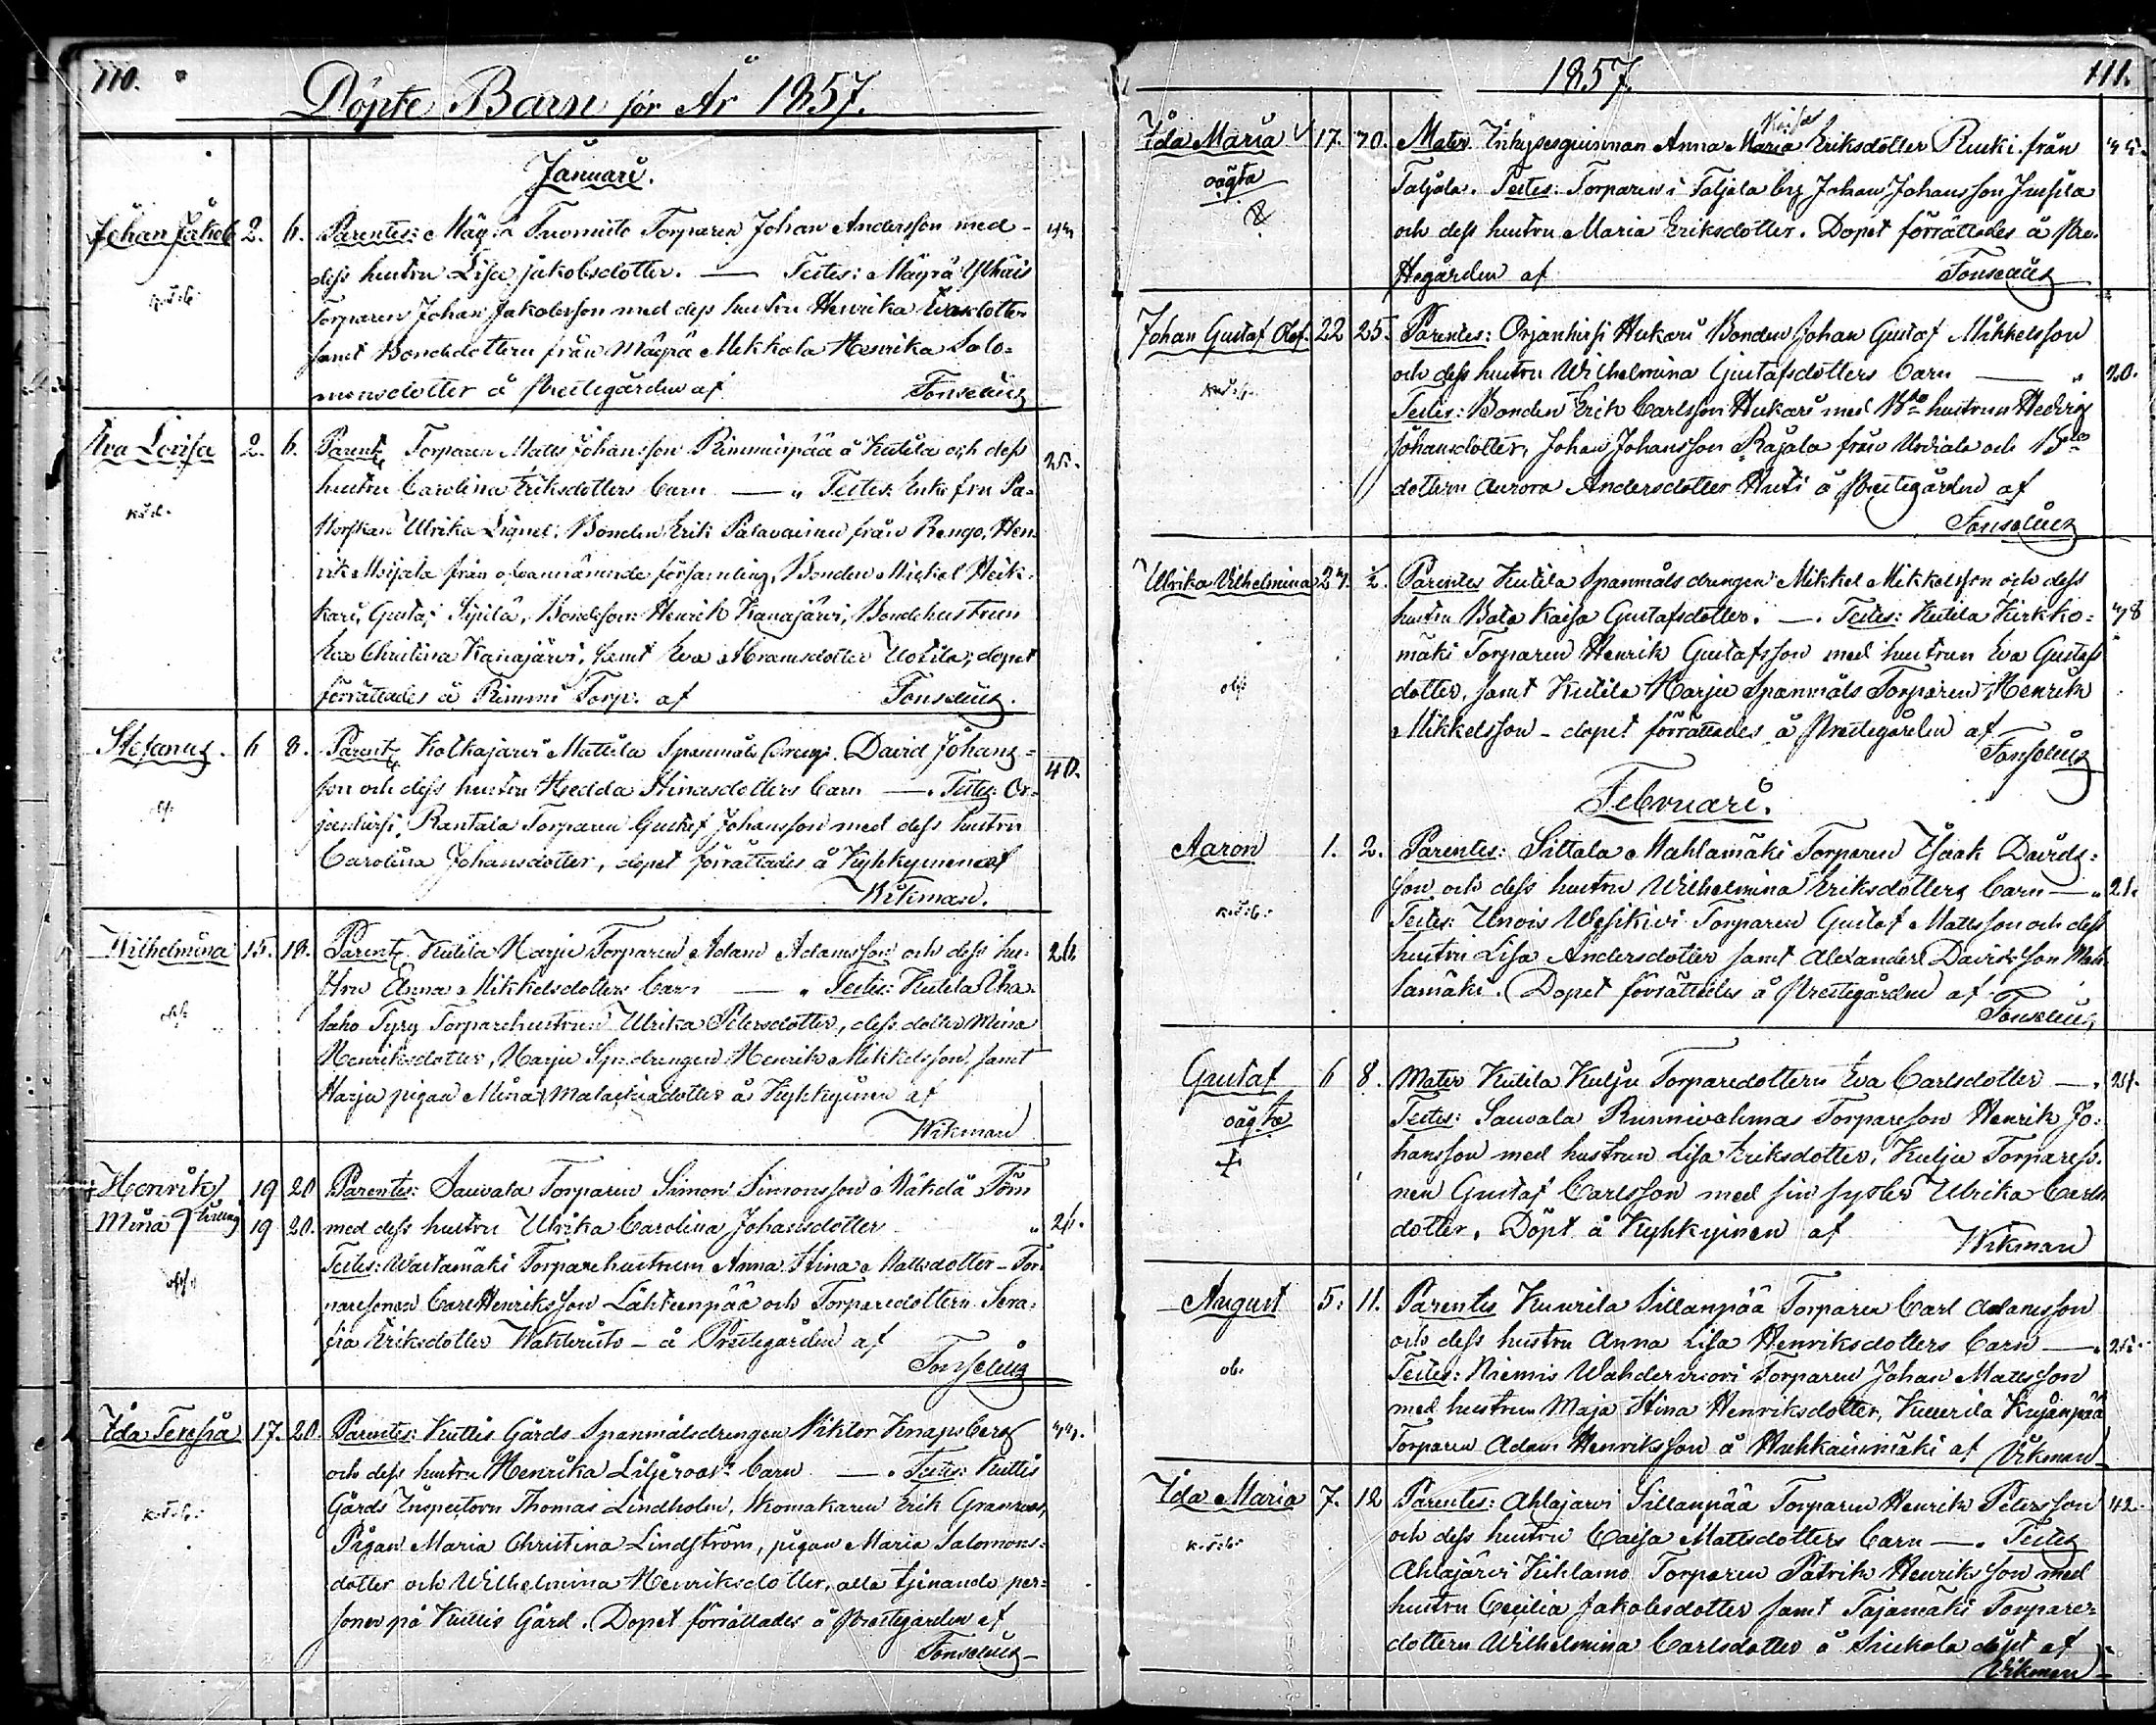 110.
Döpte Barn för År 1857.
Januari.
Johan Jakob 2. 6. Parentes: Mäyrä Tuomisto Torparen Johan Andersson med
dess hustru Lisa Jakobsdotter. — Testes: Mäyrä Ylhäis
Torparen Johan Jakobsson med dess hustru Henrika Evasdotter
samt Bondedottern från Mäyrä Mikkola Henrika Salo-
monsdotter å Prestegården af Fonselius
Eva Lovisa 2. 6. Parentes Torparen Matts Johansson Rimminpää å Kutila och dess 25.
hustru Carolina Eriksdotters barn — Testes: Enke fru Pa-
storskan Ulrika Lignel, Bonden Erik Palavainen från Rengo, Hen-
rik Moijala från ofvannämnde församling, Bonden Mickel Heik-
kari, Gustaf Sipilä, Bondeson Henrik Kanajärvi, Bondehustrun
Eva Christina Kanajärvi, samt Eva Abramsdotter Uotila; dopet
förrättades å Rimmi Torp. af Fonselius.
Stefanus. 6 8. Parentes Kolkajärvi Mattila Spanmåls dreng. David Johans- 40.
son och dess hustru Hedda Stinasdotters barn —. Testes: Or-
janhirsi, Rantala Torparen Gustaf Johansson med dess hustru
Carolina Johansdotter, dopet förrättades å Kyhkynen af
Wikman.
Wilhelmina 15. 18. Parentes Kutila Harju Torparen Adam Adamsson och dess hu- 26.
stru Anna Mikkelsdotters barn — Testes: Kutila
Torparehustrun Ulrika Petersdotter, dess dotter Mina
Henriksdotter, Harju Sp. drengen Henrik Mikkelsson, samt
Harju pigan Mina Malakiadotter å Kyhkyinen af
Wikman
Henrik 19 20 Parentes: Sauvala Torparen Simon Simonsson å
Mina tvilling 19 20. med dess hustru Ulrika Carolina Johansdotter 26.
Testes: Torparehustrun Anna Stina Mattsdotter - Tor-
paresonen Carl Henriksson Lähteenpää och Torparedottern Sera-
fia Eriksdotter - å Prestegården af
Fonselius
Ida Teresia 17. 20 Parentes: Kuttis Gårds Spanmålsdrengen Viktor Knapsberg
och dess hustru Henrika barn —. Testes: Kuttis
Gårds Inspectorn Thomas Lindholm, Skomakaren Erik Granroos,
Pigan Maria Christina Lindström, pigan Maria Salomons-
dotter och Wilhelmina Henriksdotter, alla tjenande per-
soner på Kuttis Gård. Dopet förrättades å Prestegården af
Fonselius
1857. 111.
Ida Maria 17. 20. Mater Inhysesquinnan Anna Maria Kaisa Eriksdotter Rucki från
oägta Taljala. Testes: Torparen i Taljala by Johan Johansson Jussila
och dess hustru Maria Eriksdotter. Dopet förrättades å Pre-
stegården af Fonselius
Johan Gustaf Olof. 22 25. Parentes: Orjanhirsi Hukari Bonden Johan Gustaf Mikkelsson
och dess hustru Wilhelmina Gustafsdotters barn — 20.
Testes: Bonden Erik Carlsson Hukari med hustrun Hedvig
Johansdotter, Johan Johansson Rajala från Urdiala och
dottern Aurora Andersdotter Huti å Prestegården af
Fonselius
Ulrika Wilhelmina Parentes Kutila Spanmåls drengen Mikkel Mikkelsson och dess
hustru Kaisa Gustafsdotter. —. Testes: Kutila Kirkko-
mäki Torparen Henrik Gustafsson med hustrun Eva Gustafs
dotter, samt Kutila Harju Spanmåls Torparen Henrik
Mikkelsson - dopet förrättades å Prestegården af
Fonselius
Februari.
Aaron 1. 2. Parentes: Sattala Mahlamäki Torparen Isaak Davids-
son och dess hustru Wilhelmina Eriksdotters barn — 21.
k.s.b. Testes: Unois Wesikivi Torparen Gustaf Mattsson och dess
hustru Lisa Andersdotter samt Alexander Davidsson Mah-
lamäki. Dopet förrättades å Prestegården af
Fonselius
Gustaf 6 8. Mater Kutila Kulju Torparedottern Eva Carlsdotter —.
oägta Testes: Sauvala Torpareson Henrik Jo-
hansson med hustrun Lisa Eriksdotter, Kulju Torpareso-
nen Gustaf Carlsson med sin syster Ulrika Carls
dotter. Döpt å Kyhkyinen af Wikman
August 5. 11. Parentes Kuurila Sillanpää Torparen Carl Adamsson
ob. och dess hustru Anna Lisa Henriksdotters barn — 25.
Testes: Niemis Torparen Johan Mattsson
med hustrun Maja Stina Henriksdotter, Kuurila Kujanpää
Torparen Adam Henriksson å af Wikman
Ida Maria 7. 12 Parentes: Ahlajärvi Sillanpää Torparen Henrik Petersson 42.
k.s.b. och dess hustru Caisa Mattsdotters barn —. Testes
Ahlajärvi Torparen Patrik Henriksson med
hustru Cecilia Jakobsdotter samt Tajamäki Torpare-
dottern Wilhelmina Carlsdotter å döpt af
Wikman